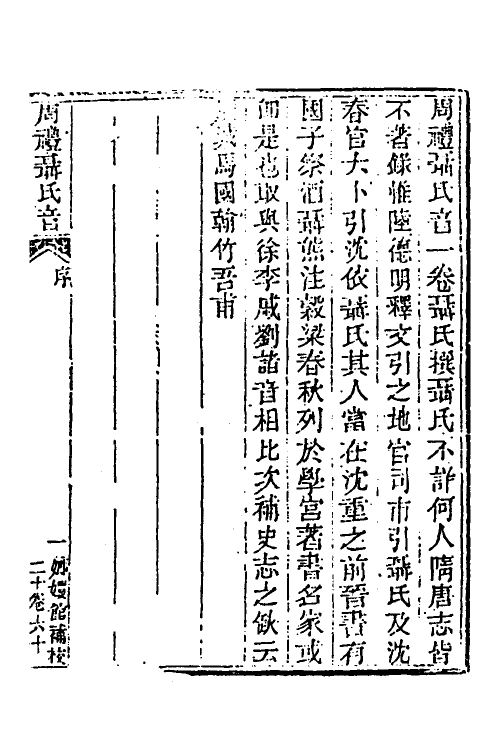 周禮聶氏音一卷聶氏撰聶氏不詳何人隋唐志皆
不著錄惟陸德明釋文引之地官司市引聶氏及沈
春官大卜引沈依聶氏其人當在沈重之前晉書有
國子祭酒聶熊注穀梁春秋列於學宮著書名家或
卽是也取與徐李戚劉諸音相比次補史志之缺云
馬國翰竹吾甫
周禮聶氏音
序
一
嫏嬛館補校
二十卷六十